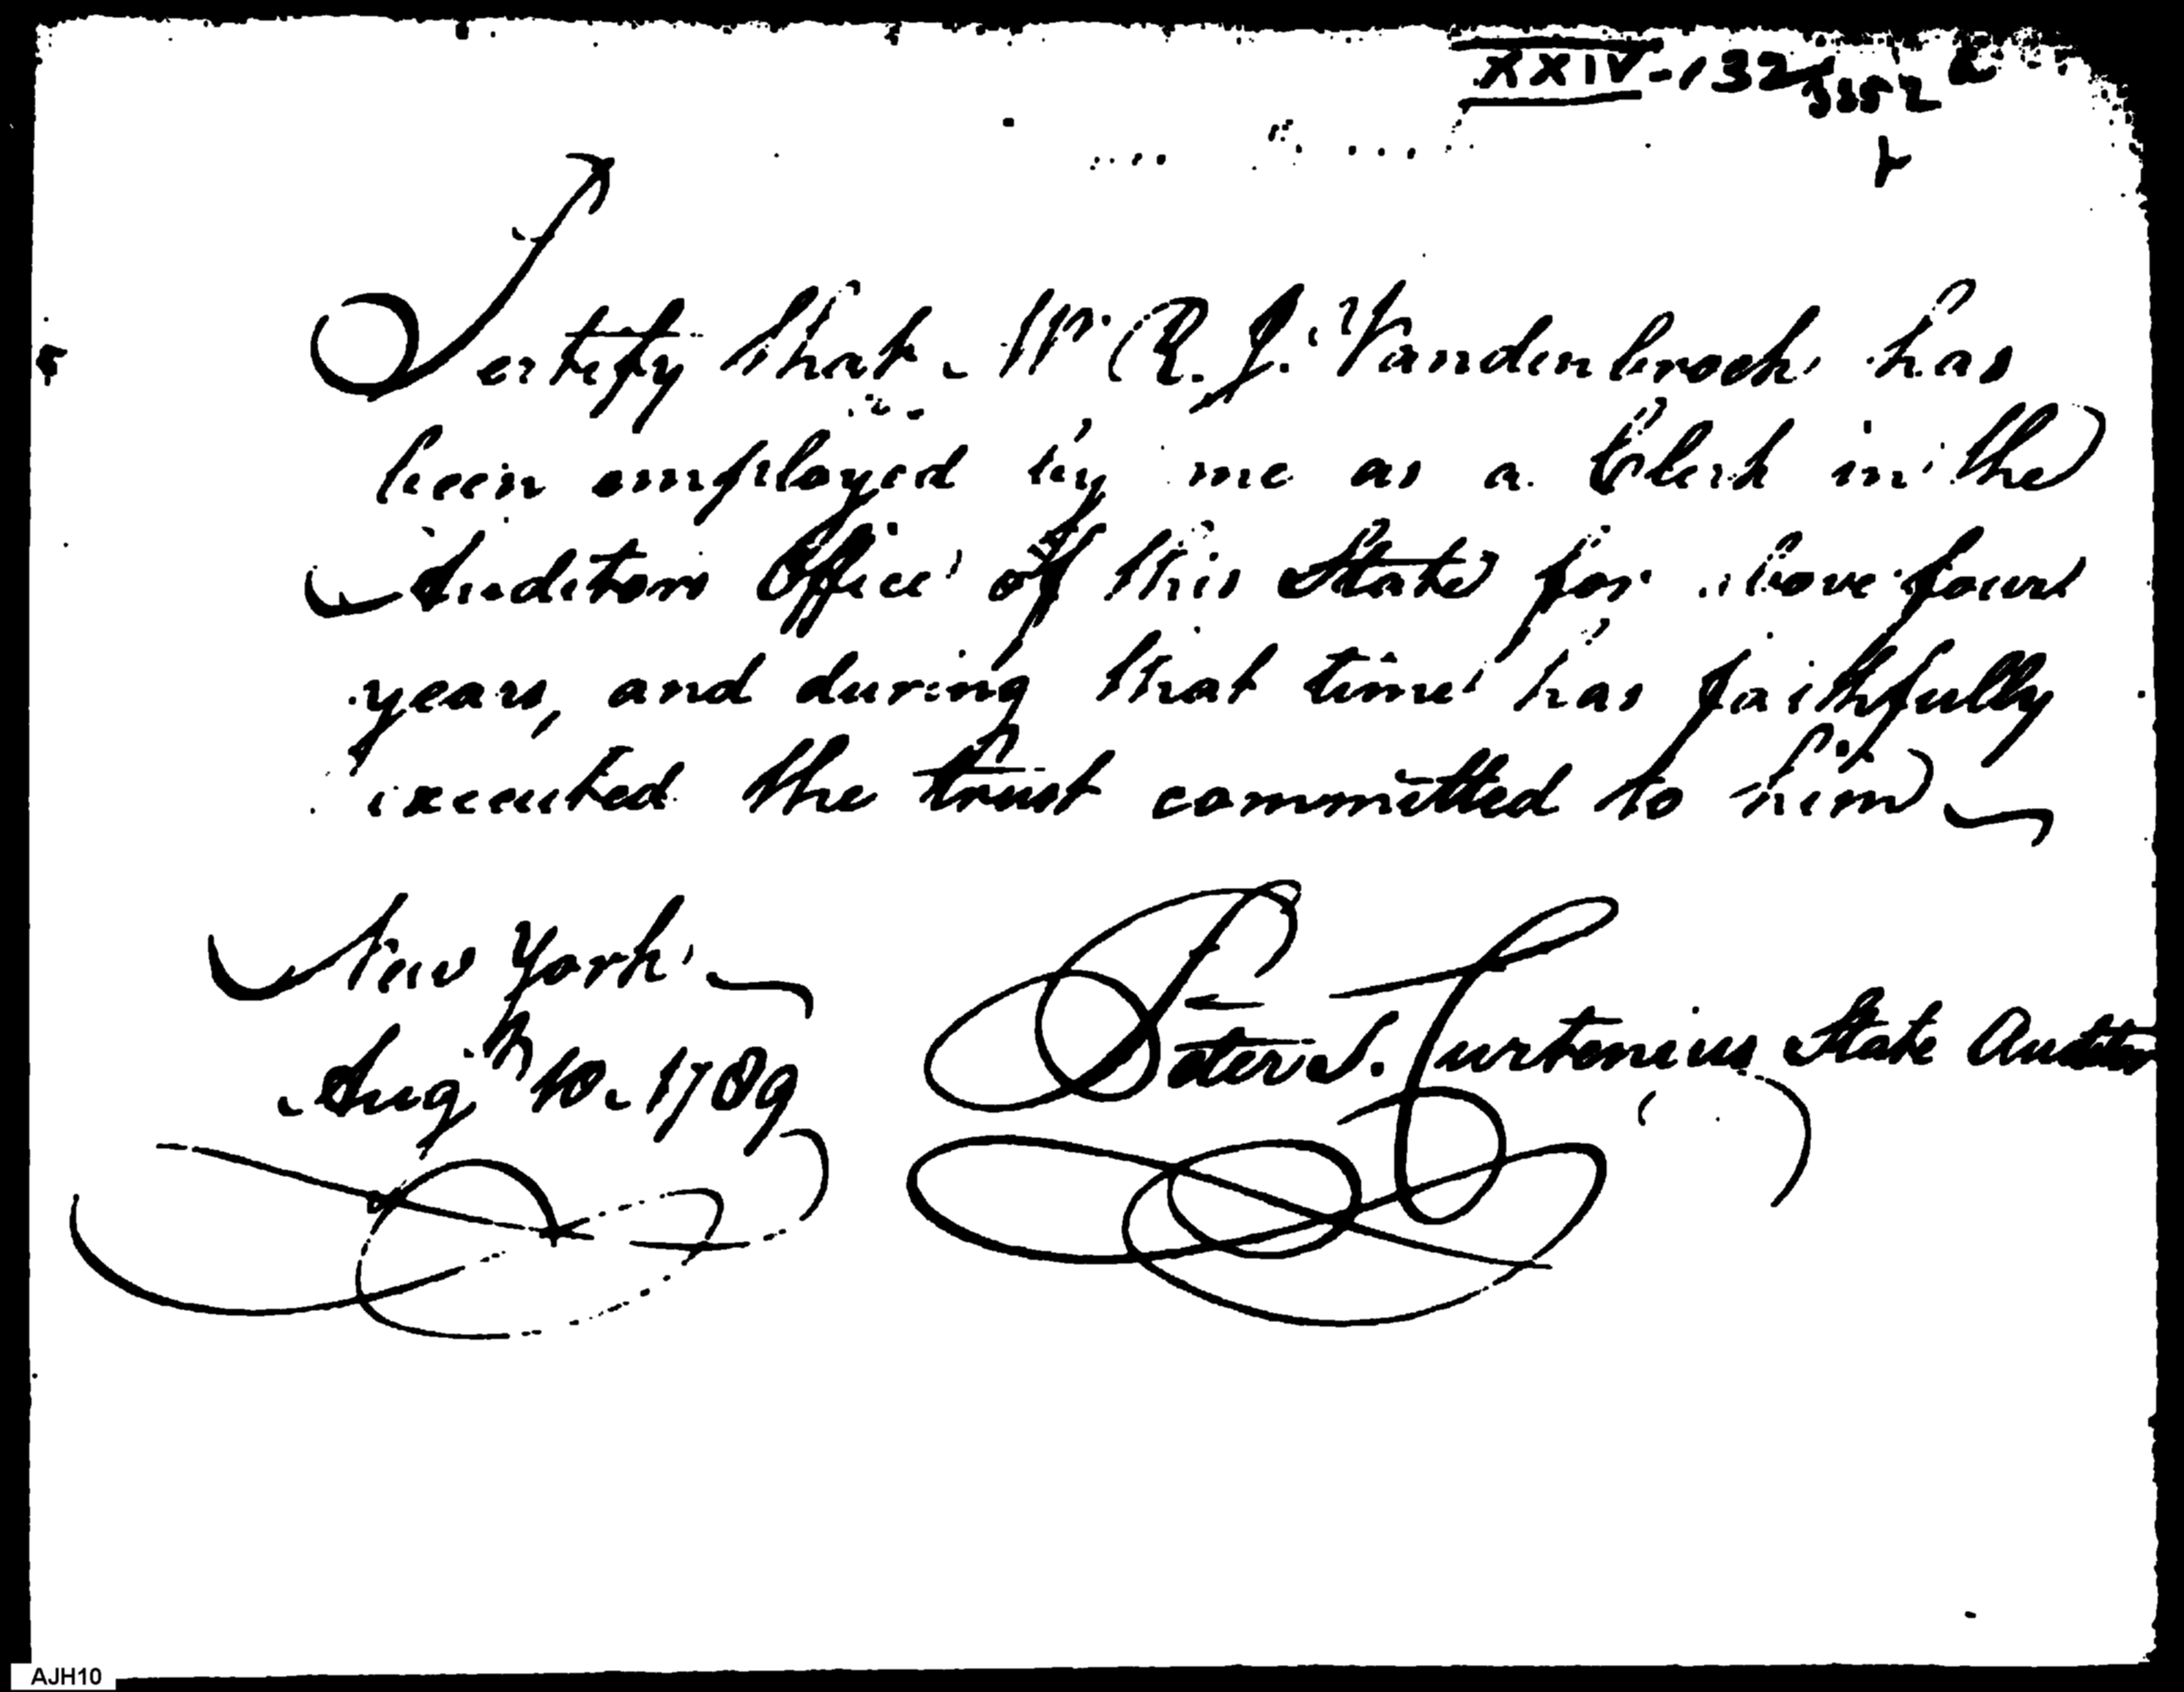 XXIV-132
I certify that Mr. R. J. Vandenbroek has
been employed by me as a Clerk in the
Auditors Office of this State for above four
years, and during that time has faithfully
executed the trust committed to him
New York
Augth 10. 1789
Peter T. Curtenius State Auditor
AJH10